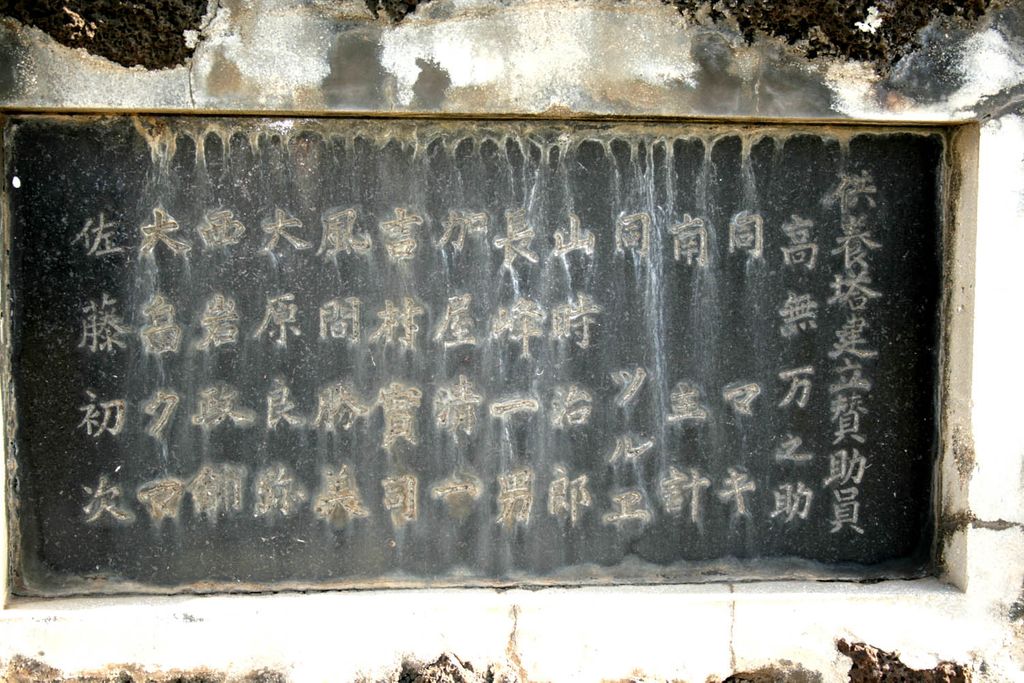 供養塔建立賛助員
高無万之助
同マキ
南主計
同ツルエ
山時治郎
長峰一男
加屋清一
吉村實司
風間勝美
大原良弥
西岩政御
大畠クマ
佐藤初次